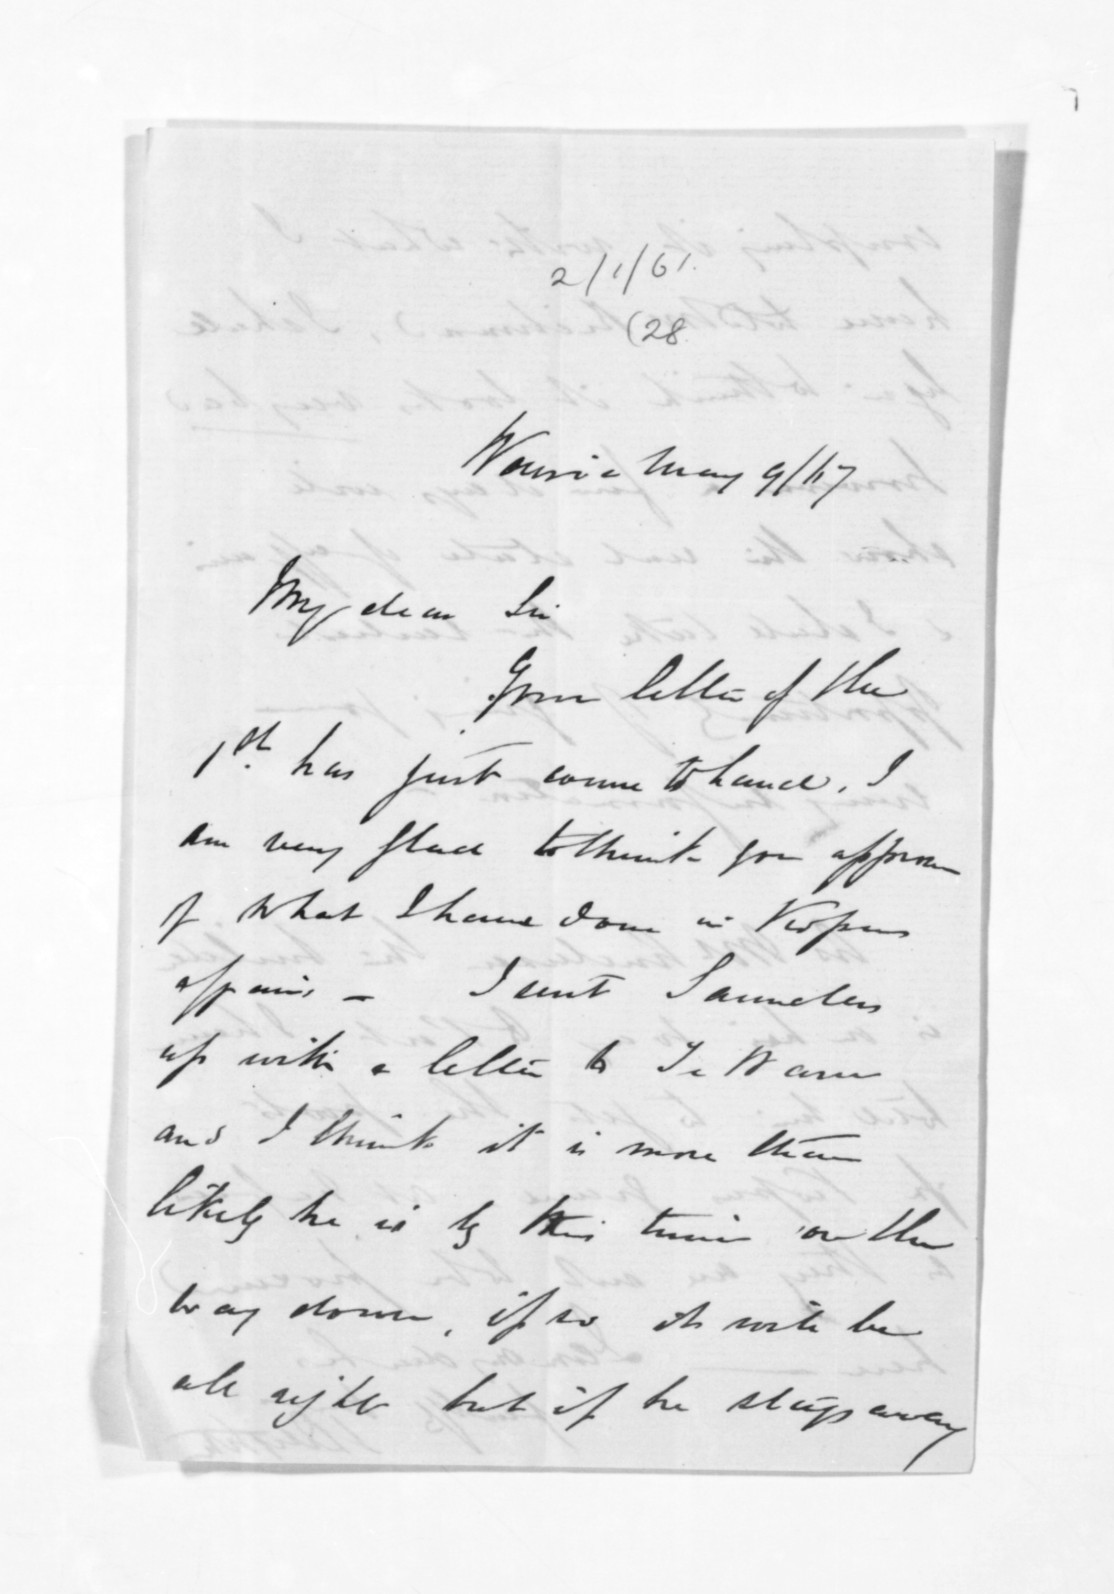 2/1/61.
(28
Wairoa May 9/67
My dear Sir
Your letter of the
1st. has just come to hand. I
am very glad to think you approve
of what I have done in
affairs – I sent Saunders
up with a letter to Te Waru
and I think it is more than
likely he is by this time on the
way down, if so it will be
all right but if he stays away